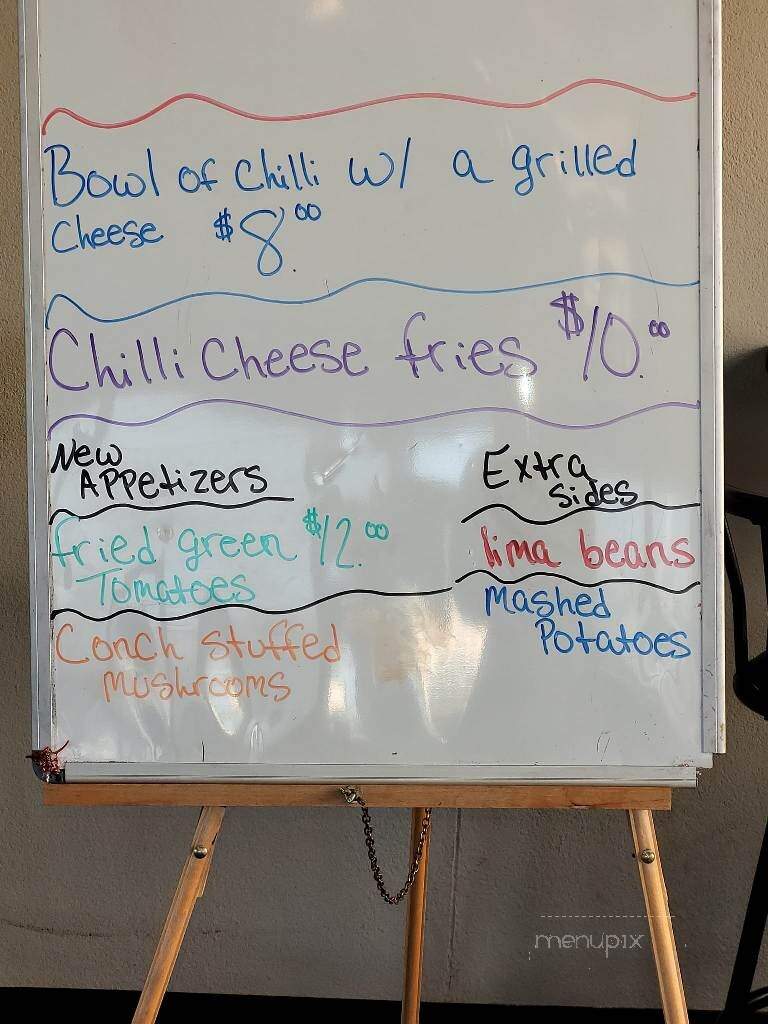 Bowl of Chilli w/ a grilled
Cheese $8.00
Chilli Cheese fries $10.00
New
Appetizers
fried green $12.00
Tomatoes
Conch stuffed
mushrooms
Extra
sides
lima beans
Mashed
Potatoes
menupix